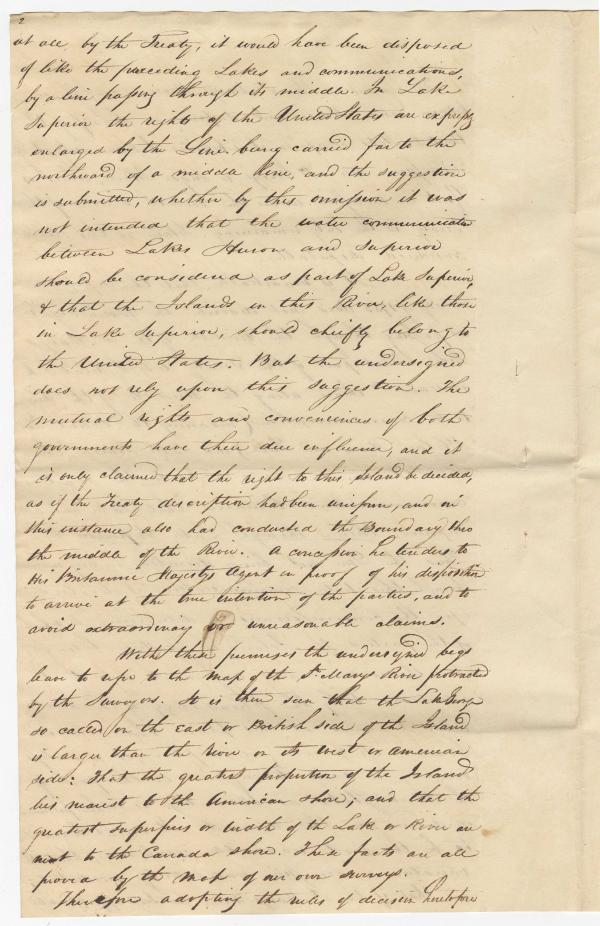 2
at all by the Treaty, it would have been disposed
of like the preceding Lakes and communications,
by a line passing through its middle. In Lake
Superior the rights of the United States are expressly
enlarged by the Line being carried far to the
northward of a middle line, and the suggestion
is submitted, whether by this omission it was
not intended that the water communication
between Lakes Huron and Superior
should be considered as part of Lake Superior,
& that the Islands in this River, like those
in Lake Superior, should chiefly belong to
the United States. But the undersigned
does not rely upon this suggestion. The
mutual rights and conveniences of both
governments have their due influence, and it
is only claimed that the right to this Island be decided,
as if the Treaty description had been uniform, and in
this instance also had conducted the Boundary thro
the middle of the River. A concession he tenders to
His Britannic Majestys Agent in proof of his disposition
to arrive at the true intention of the parties, and to
avoid extraordinary or unreasonable claims.
With these premises the undersigned begs
leave to refer to the map of the St Marys River protracted
by the Surveyors. It is then seen that the Lake George
so called on the east or British side of the Island
is larger than the River on its west or American
side: That the greatest proportion of the Island
lies nearest to the American shore; and that the
greatest superfices or width of the Lake or River are
next to the Canada shore. These facts are all
proved by the map of our own surveys.
Therefore adopting the rules of decision heretofore